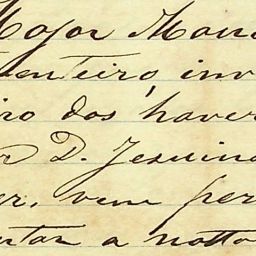 Major Mano
enteiro, inv
iro dos haver
D. Jesuino
er, vem per
entar a nota